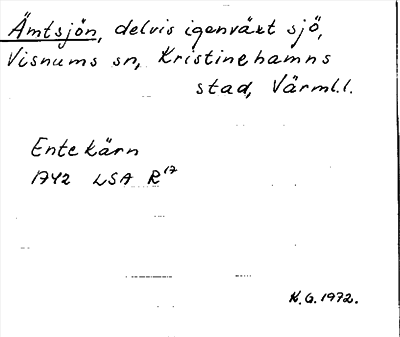 Ämtsjön, delvis igenväxt sjö,
Visnums sn, Kristinehamns
stad, Värml.l.
Entekärn
1742 LSA R17
K.G. 1972.